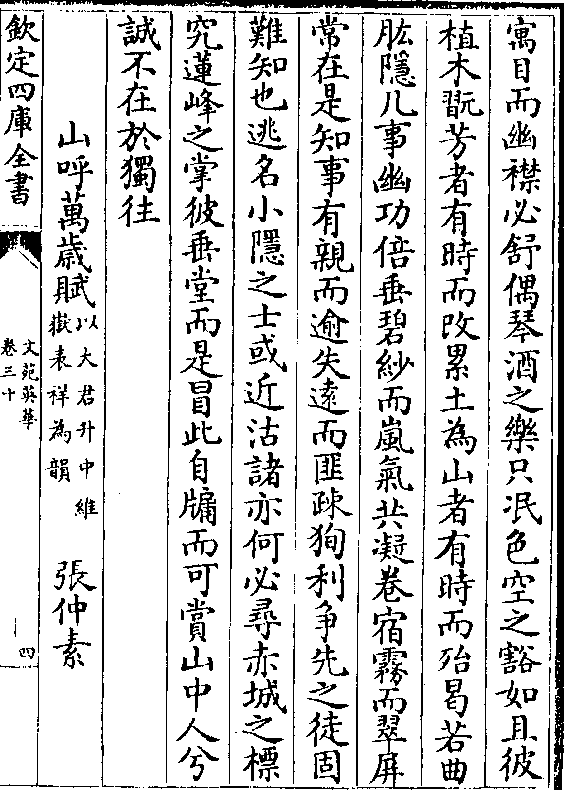 寓目而幽襟必舒偶琴酒之樂只泯色空之豁如且彼
植木翫芳者有時而改累土為山者有時而殆曷若曲
肱隱几事幽功倍垂碧紗而嵐氣共凝卷宿霧而翠屏
常在是知事有親而逾失遠而匪疎狥利争先之徒固
難知也逃名小隱之士或近沽諸亦何必尋赤城之標
究蓮峰之掌彼垂堂而是冒此自牖而可賞山中人兮
誠不在於獨往
山呼萬歳賦以大君升中維嶽表祥為韻 張仲素
欽定四庫全書
文苑英華
卷三十
四